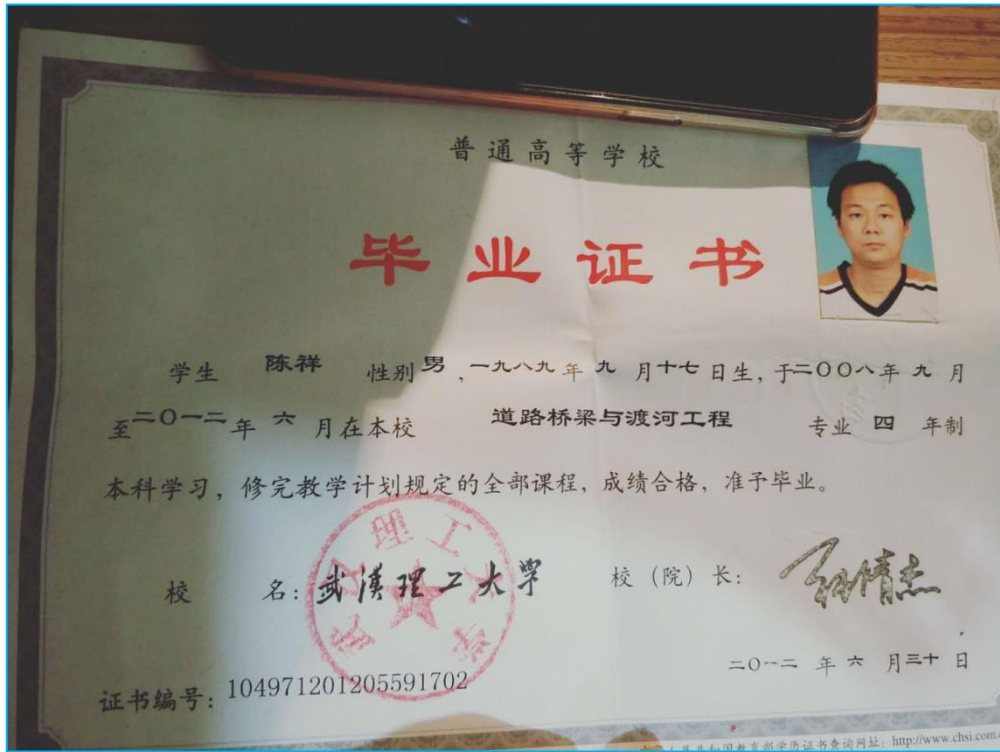 普通高等学校
毕业证书
学生 陈祥 性别男,一九八九年九月十七日生,于二〇〇八年九月
至二〇一二年六月在本校 道路桥梁与渡河工程 专业 四 年制
本科学习,修完教学计划规定的全部课程,成绩合格,准予毕业。
校 名:武汉理工大学 校(院)长:
武汉理工大学
二〇一二年六月三十日
证书编号:104971201205591702
国教育部学历证书查询网址:http://www.chsi.com.c